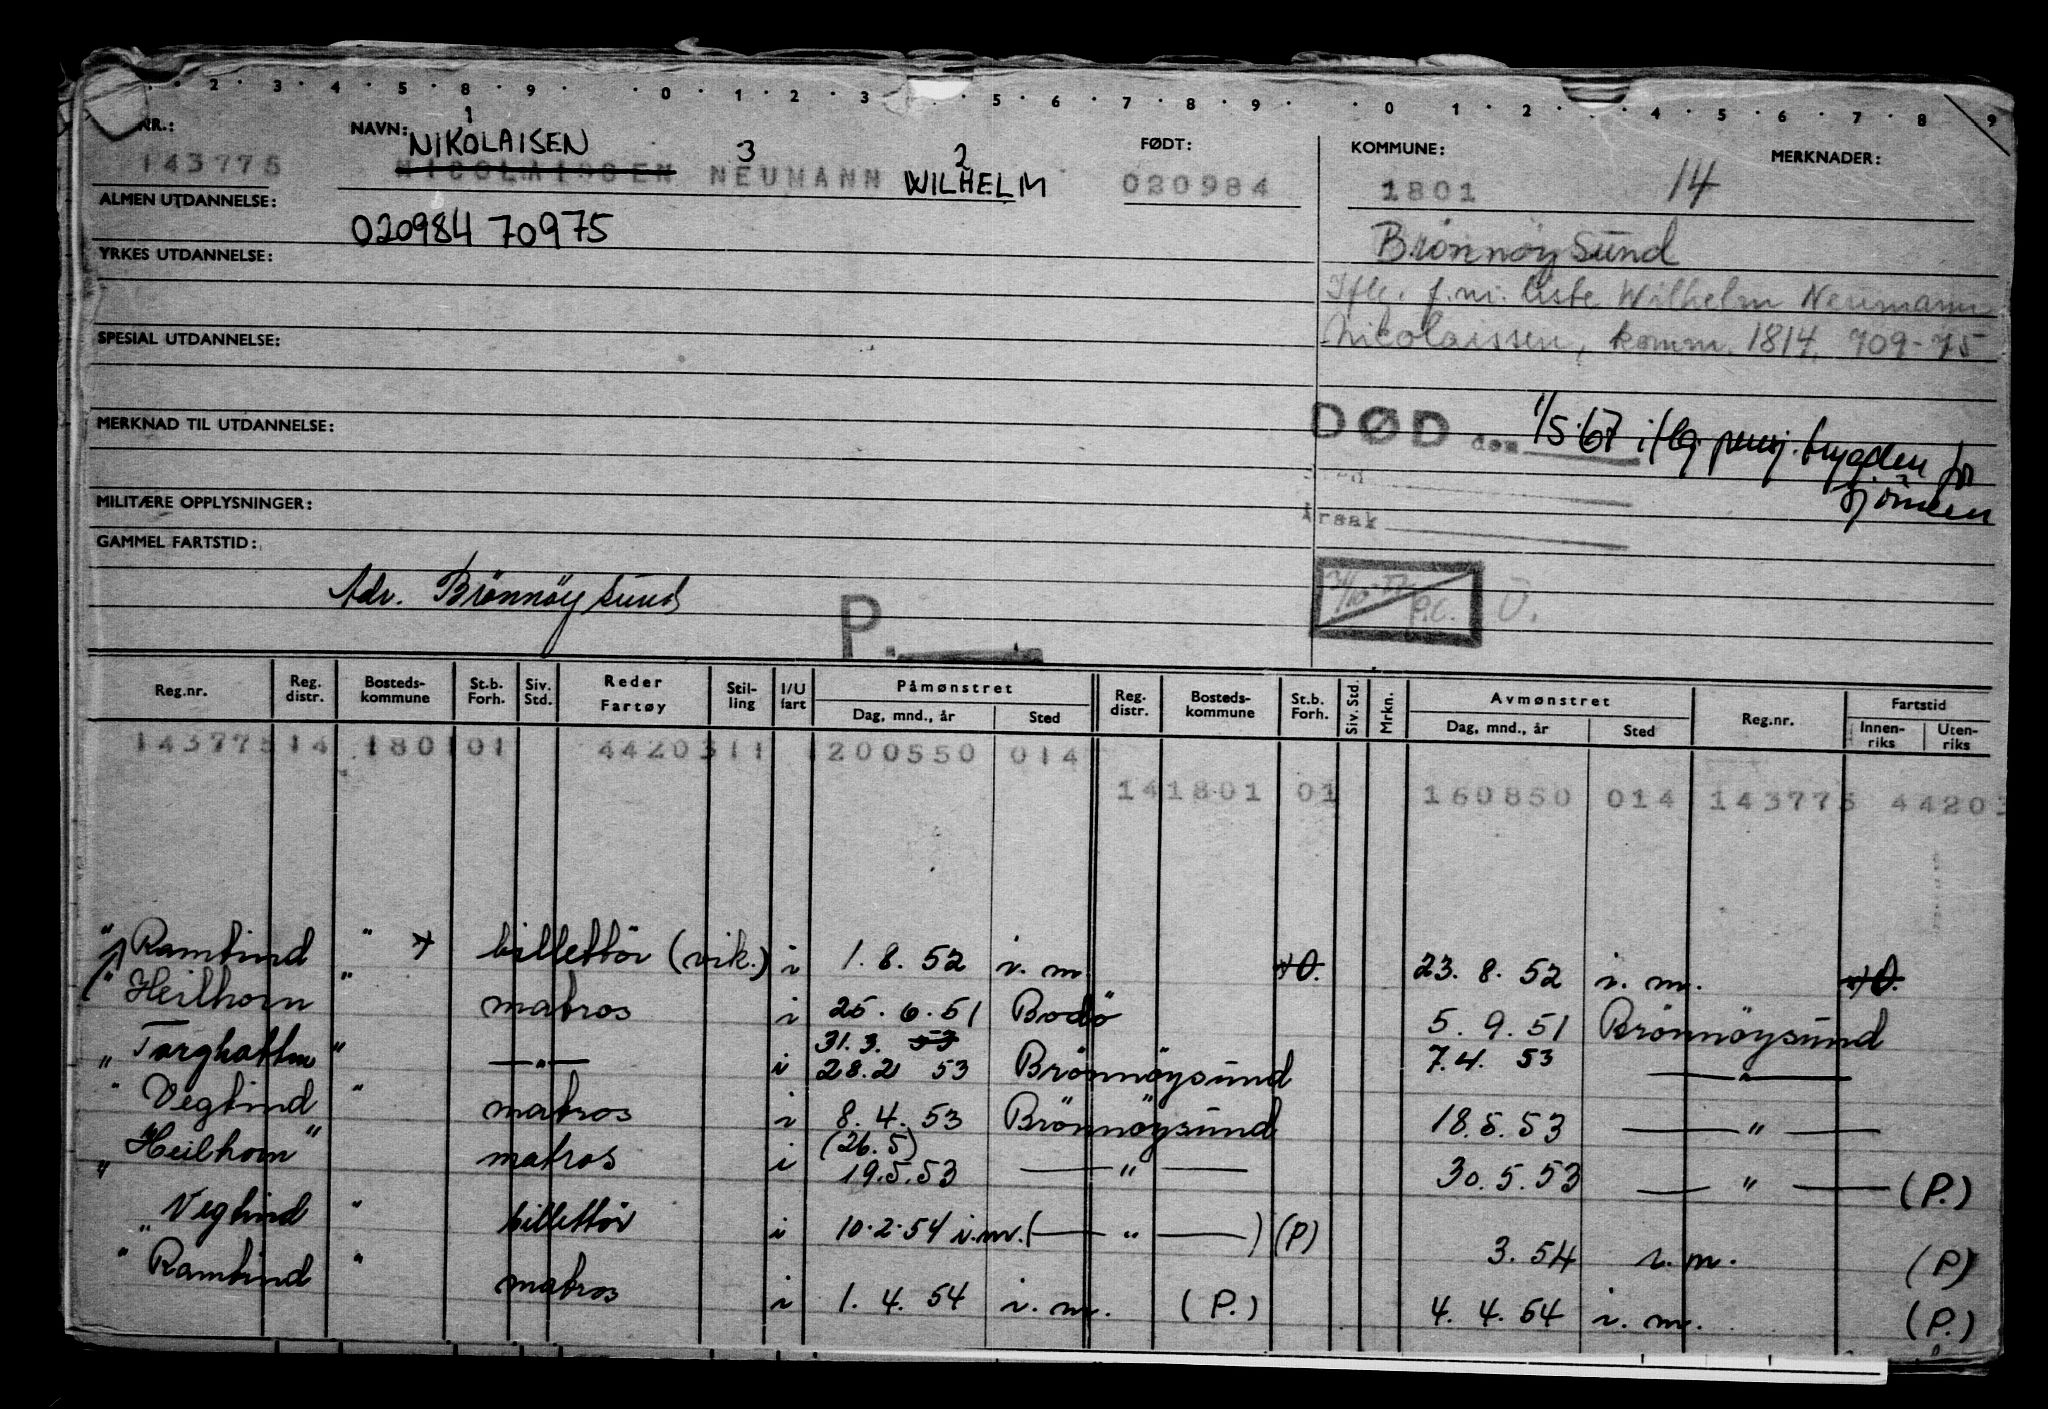 2 · 3 · 4 · 5 · 8 · 9 · 0 · 1 · 2 · 3 · 5 · 6 · 7 · 8 · 9 · 0 · 1 · 2 · 4 · 5 · 6 · 7 · 8 · 9
NR.: NAVN: FØDT: KOMMUNE: MERKNADER:
1 3 2
NIKOLAISEN
143775 NICOLAISSEN NEUMANN WILHELM 020984 1801 14
ALMEN UTDANNELSE:
020984 70975 Brönnöysund
YRKES UTDANNELSE:
Iflg. f.m. liste Wilhelm Neumann
SPESIAL UTDANNELSE: Nicolaissen, komm. 1814. 709-75
MERKNAD TIL UTDANNELSE: DØD den 1/5.67 iflg. pensj. trygden for
sjömenn
MILITÆRE OPPLYSNINGER:
Årsak
GAMMEL FARTSTID:
Adr. Brönnöysund P.
Reg.nr. Reg. distr. Bosteds-kommune St.b. Forh. Siv. Std. Reder Fartøy Stil-ling I/U fart Påmønstret Dag, mnd., år Sted Reg. distr. Bosteds-kommune St.b. Forh. Siv. Std. Mrkn. Avmønstret Dag, mnd., år Sted Reg.nr. Fartstid Innen-riks Uten-riks
143775 14 1801 01 4420311 200550 014
141801 01 160850 014 143775 4420
" Ramtind " billettör (vik.) i 1. 8. 52 i. m. 23. 8. 52 i. m.
" Heilhorn " matros i 25. 6. 51 Bodö 5. 9. 51 Brönnöysund
31. 3. 53
" Torghatten " —"— i 28.2 53 Brönnöysund 7.4. 53 —"—
" Vegtind " matros i 8. 4. 53 Brönnöysund 18.5.53 —"—
(26.5)
" Heilhorn " matros i 19.5.53 —"— 30.5.53 —"— (P.)
" Vegtind " billettör i 10.2.54 i.m. (—"—) (P) 3. 54 i. m. (P)
" Ramtind " matros i 1. 4. 54 i. m. (P.) 4. 4. 54 i. m. (P.)